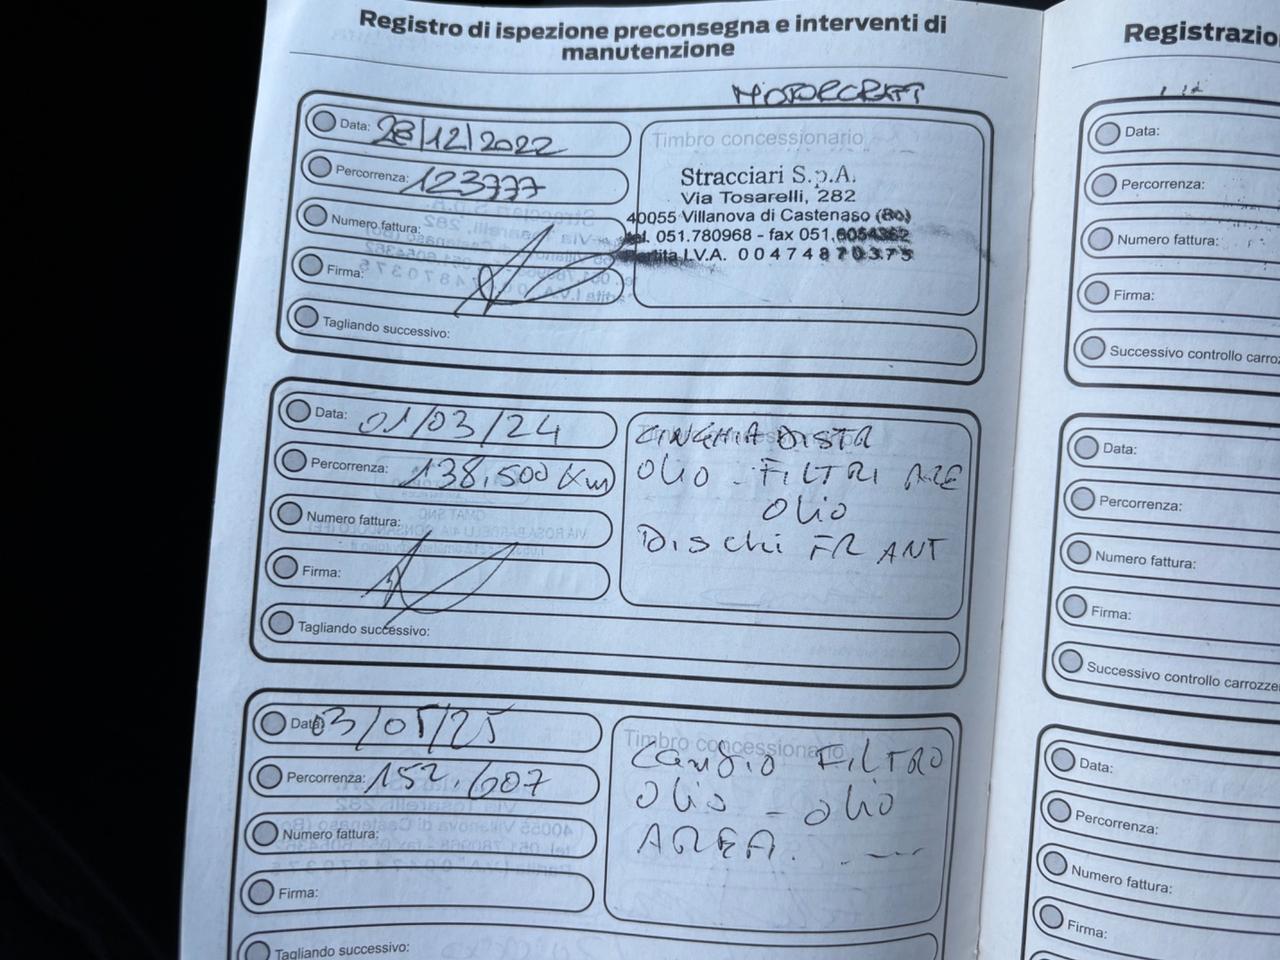 Registro di ispezione preconsegna e interventi di
manutenzione
MOTORCRAFT
Data: 28/12/2022
Percorrenza: 123777
Numero fattura:
Firma:
Tagliando successivo:
Timbro concessionario
Stracciari S.p.A.
Via Tosarelli, 282
40055 Villanova di Castenaso (Bo)
tel. 051.780968 - fax 051.6054362
Partita I.V.A. 00474870375
Data: 01/03/24
Percorrenza: 138,500 Km
Numero fattura:
Firma:
Tagliando successivo:
CINGHIA DISTR
OLIO - FILTRI ARE
OLIO
DISCHI FR ANT
Data: 03/05/25
Percorrenza: 152.607
Numero fattura:
Firma:
Tagliando successivo:
Timbro concessionario
CAMBIO FILTRO
OLIO - OLIO
AREA.
Registrazio
Data:
Percorrenza:
Numero fattura:
Firma:
Successivo controllo carroz
Data:
Percorrenza:
Numero fattura:
Firma:
Successivo controllo carrozze
Data:
Percorrenza:
Numero fattura:
Firma: